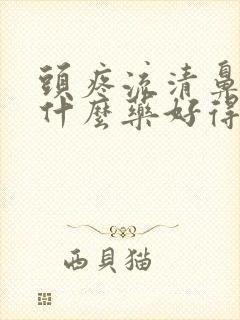 頭疼流清鼻
什麼藥好得
西貝猫